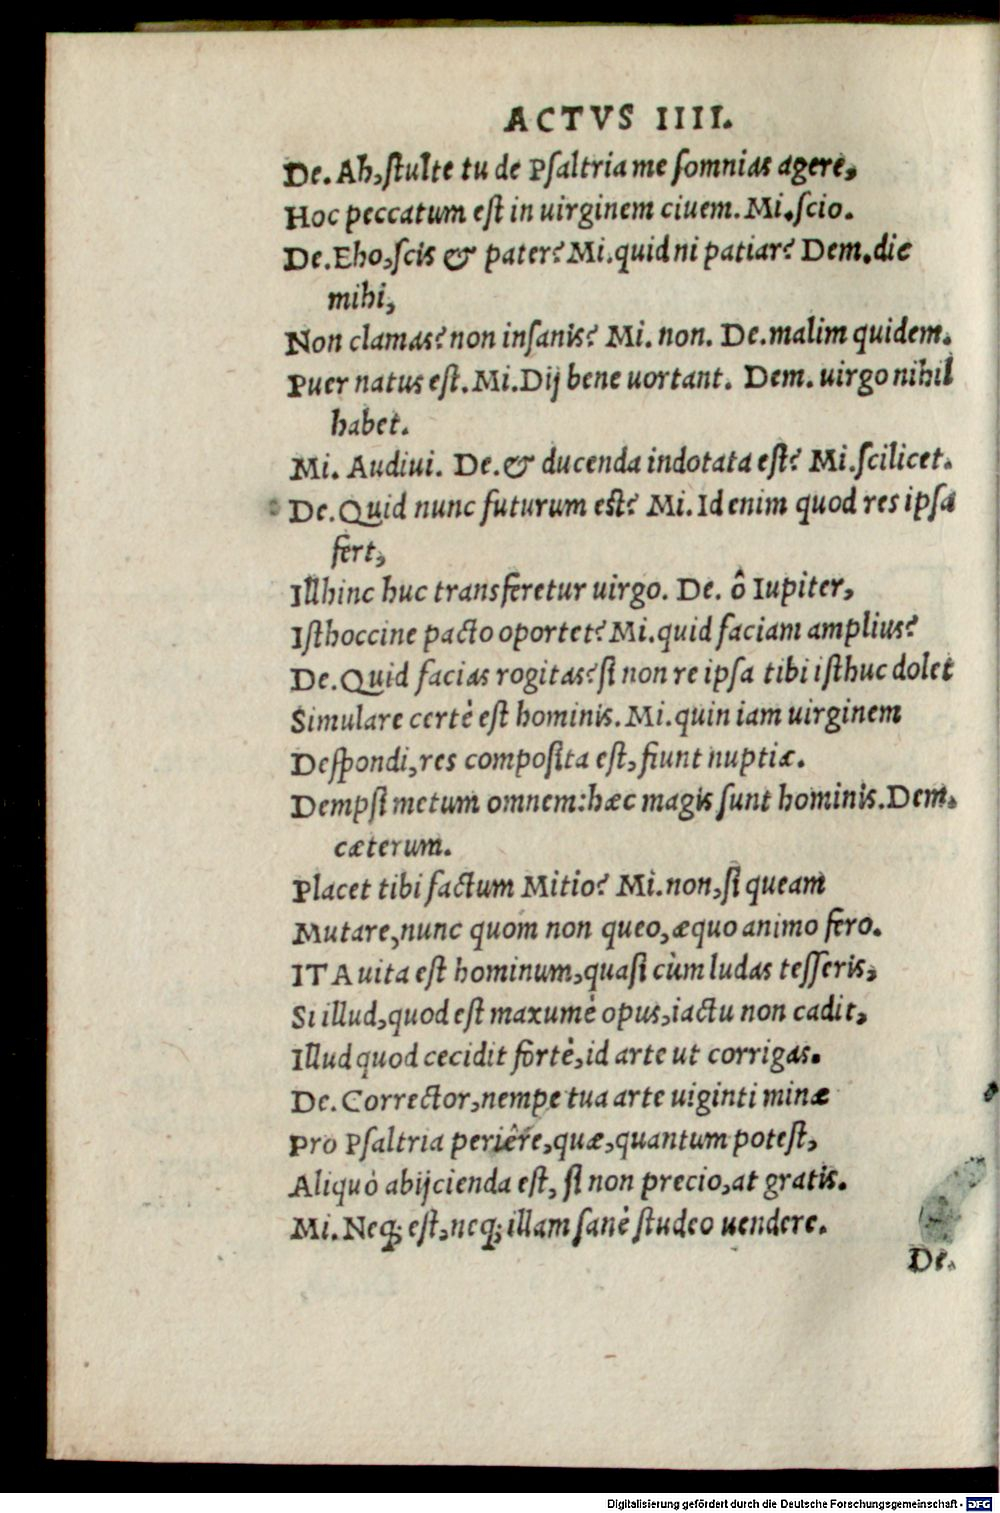 ACTVS IIII.
De. Ah, stulte tu de Psaltria me somnias agere,
Hoc peccatum est in uirginem ciuem. Mi. scio.
De. Eho, scis & pateré Mi. quid ni patiaré Dem. dic
mihi,
Non clamas? non insanis? Mi. non. De. malim quidem.
Puer natus est. Mi. Dij bene uortant. Dem. uirgo nihil
habet.
Mi. Audiui. De. & ducenda indotata est? Mi. scilicet.
De. Quid nunc futurum est? Mi. Id enim quod res ipsa
fert,
Illhinc huc transferetur uirgo. De. ô Iupiter,
Isthoccine pacto oportet? Mi. quid faciam amplius?
De. Quid facias rogitas? si non re ipsa tibi isthuc dolet
Simulare certè est hominis. Mi. quin iam uirginem
Despondi, res composita est, fiunt nuptiæ.
Dempsi metum omnem: hæc magis sunt hominis. Dem.
cæterum.
Placet tibi factum Mitio? Mi. non, si queam
Mutare, nunc quom non queo, æquo animo fero.
ITA uita est hominum, quasi cùm ludas tesseris,
Si illud, quod est maxumè opus, iactu non cadit,
Illud quod cecidit fortè, id arte ut corrigas.
De. Corrector, nempe tua arte uiginti minæ
Pro Psaltria periêre, quæ, quantum potest,
Aliquò abijcienda est, si non precio, at gratis.
Mi. Neq; est, neq; illam sanè studeo uendere.
De.
Digitalisierung gefördert durch die Deutsche Forschungsgemeinschaft - DFG